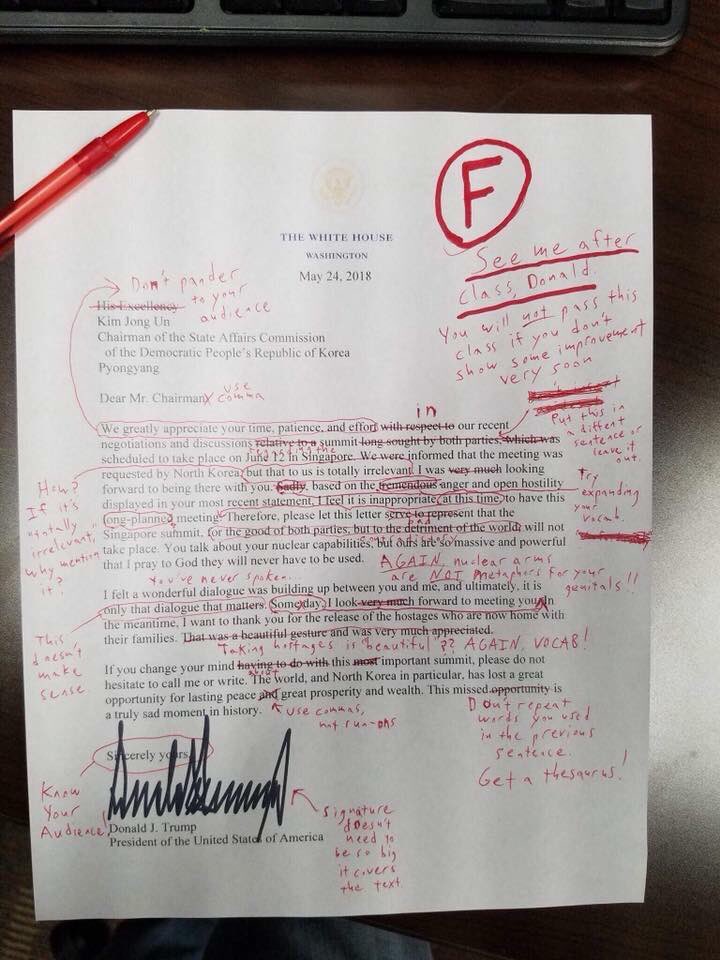 F
See me after
class, Donald.
You will not pass this
class if you don't
show some improvement
very soon
THE WHITE HOUSE
WASHINGTON
May 24, 2018
Don't pander
to your
audience
His Excellency
Kim Jong Un
Chairman of the State Affairs Commission
of the Democratic People's Republic of Korea
Pyongyang
Dear Mr. Chairman:
use
comma
in
We greatly appreciate your time, patience, and effort with respect to our recent
negotiations and discussions relative to a summit long sought by both parties, which was
scheduled to take place on June 12 in Singapore. We were informed that the meeting was
requested by North Korea, but that to us is totally irrelevant. I was very much looking
forward to being there with you. Sadly, based on the tremendous anger and open hostility
displayed in your most recent statement, I feel it is inappropriate, at this time, to have this
long-planned meeting. Therefore, please let this letter serve to represent that the
Singapore summit, for the good of both parties, but to the detriment of the world, will not
take place. You talk about your nuclear capabilities, but ours are so massive and powerful
that I pray to God they will never have to be used.
Put this in
a different
sentence or
leave it
out.
Try
expanding
your
vocab.
How?
If it's
"totally
irrelevant,"
why mention
it?
AGAIN, nuclear arms
are NOT metaphors for your
genitals!!
You've never spoken...
I felt a wonderful dialogue was building up between you and me, and ultimately, it is
only that dialogue that matters. Some day, I look very much forward to meeting you. In
the meantime, I want to thank you for the release of the hostages who are now home with
their families. That was a beautiful gesture and was very much appreciated.
This
doesn't
make
sense
Taking hostages is beautiful?? AGAIN, VOCAB!
If you change your mind having to do with this most important summit, please do not
about
hesitate to call me or write. The world, and North Korea in particular, has lost a great
opportunity for lasting peace and great prosperity and wealth. This missed opportunity is
a truly sad moment in history.
use commas,
not run-ons
Don't repeat
words you used
in the previous
sentence.
Get a thesaurus!
Sincerely yours,
Know
Your
Audience!
Donald J. Trump
President of the United States of America
signature
doesn't
need to
be so big
it covers
the text